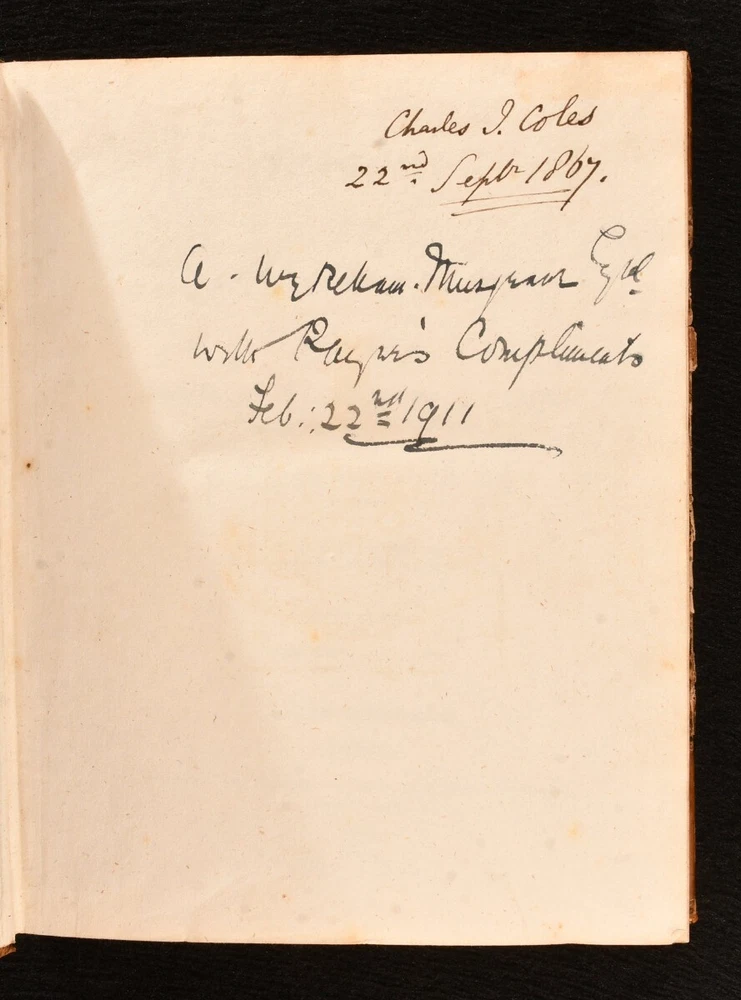 Charles I. Coles
22nd Septr 1867.
A. Wykeham. Musgrave Esqre
with Payne's Compliments
Feb: 22nd 1911